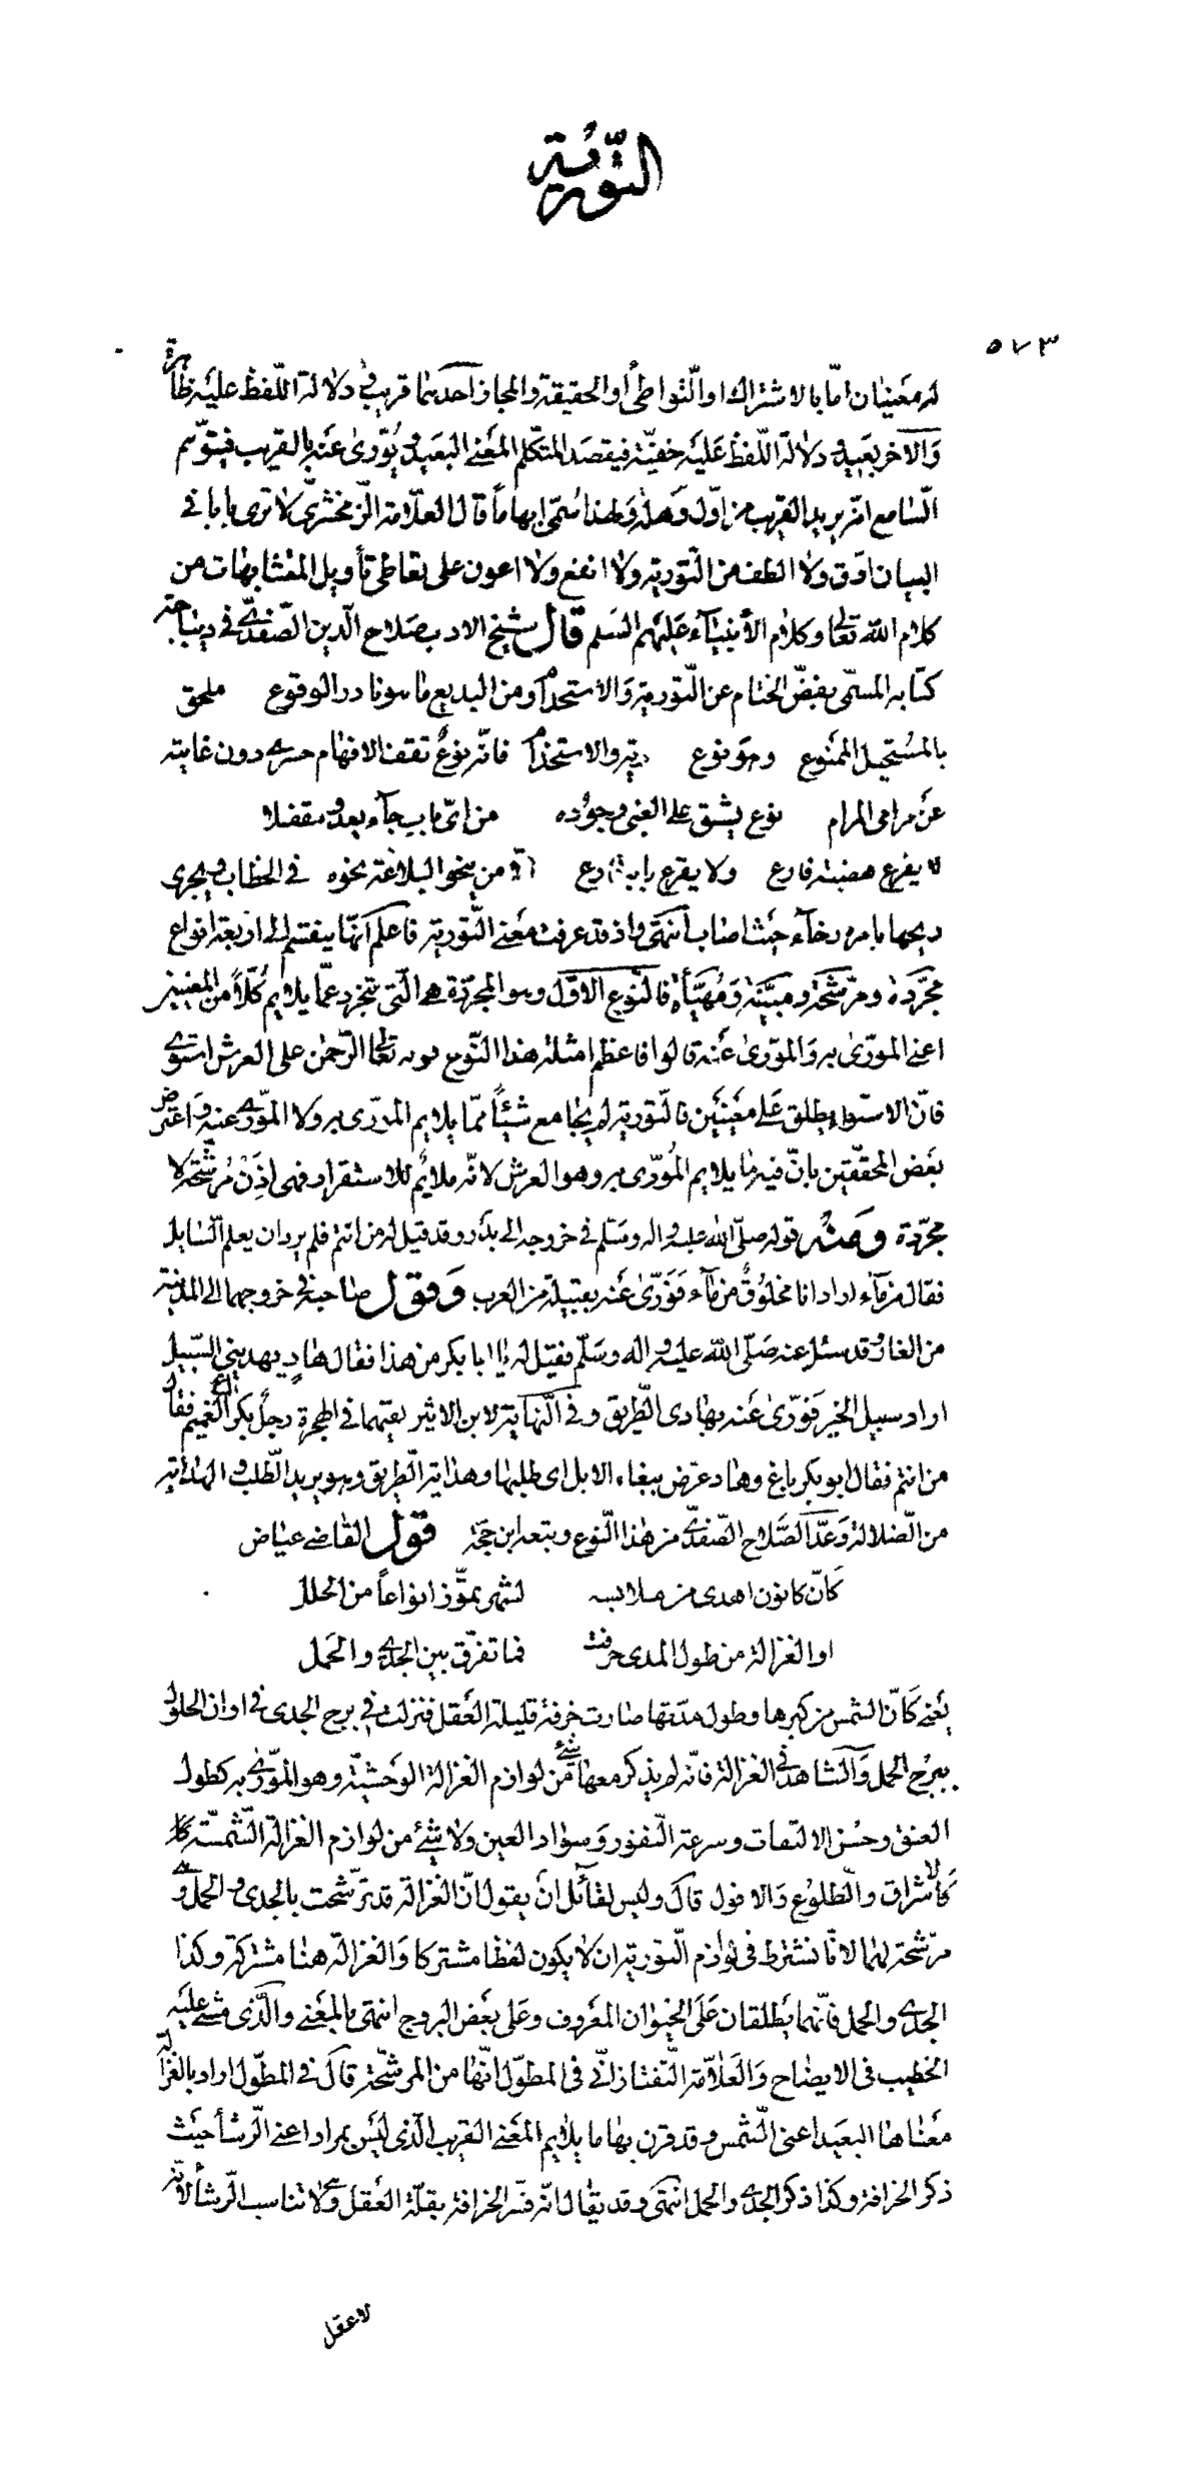 التورية
٥٧٣
له معنيان امّا بالاشتراك او التّواطئ أو الحقيقة والمجاز احدهما قريب في دلالة اللّفظ عليه ظاهرة
وَالآخر بعيد ودلالة اللّفظ عَليه خفيّة فيقصد المتكلّم المعنى البعيد ويُوّرى عَنه بالقريب فيتوّهم
السّامع انّه يريد القريب من اوّل وَهلة وَلهذا سُمّى ايهاماً قال العلّامة الزّمخشرىّ لا ترى بابا في
البيان ادّق ولا الطف من التّورية ولا انفع ولا اعون على تعاطى تأويل المتشابهات من
كلام اللّه تعالى وكلام الأنبيآء عليهم السّلم قال شيخ الادب صَلاح الّدين الصّفدىّ في ديباجة
كتابه المسمّى بفضّ الختام عن التّورية وَالاستخدام ومن البديع ما هو نادر الوقوع ملحق
بالمُستحيل الممنوع وهو نوع التورية والاستخدام فانّه نوعٌ تقف الافهام حسرى دون غايته
عَن مرامى المرام نوع يشق على الغبى وجوُده من اىّ باب جآء يغدو مقفلا
لا يفرع هضبته فارع ولا يقرع بابه قارع الّا من ينحو البلاغة نحوه في الخطاب ويجرى
ريحها بامره رخآء حيث اصاب انتهى واذ قد عرفت معنى التّورية فاعلم انّها ينقسم الى اربعة انواع
مجرّدة ومرّشحة ومبيّنة وَمُهيّأة فالنّوع الاوّل وهو المجرّدة هى الّتى تتجرد عمّا يلايم كُلّاً من المعنيين
اعنى المورّى به وَالمورّى عَنه قالوا فاعظم امثلة هذا النّوع قوله تعالى الرّحمن على العرش استوى
فانّ الاستواء يطلق عَلى معنيين فالتّورية لم يجامع شيئاً ممّا يلايم المورّى به ولا المورّى عنه وَاعترض
بعَض المحقّقين بانّ فيه ما يلايم المُورّى به وهو العرش لانّه ملائم للاستقرار فهى اذَنْ مُرشّحة لا
مجرّدة وَمنْه قوله صلّى اللّه عليه واله وسَلّم في خروجه الى بدَر وقد قيل له من انتم فلم يرد ان يعلم السّايل
فقال من مآء اراد انا مخلوُقٌ من مآء فَوَرّى عَنه بقبيلة من العرب وَقول صاحبه في خروجهما الى المدينة
من الغار وقد سئل عنه صَلّى اللّه عليه واله وسَلّم فقيل له يا ابا بكر من هذا فقال هادٍ يهدينى السّبيل
اراد سبيل الخير فَورّى عَنه بهادى الطّريق وفى النّهاية لابن الاثير لقيهما فى الهجرة رجلٌ بكراع الغميم فقال
من انتم فقال ابو بكر باغ وهاد عرّض ببغاء الابل اى طلبها وهداية الطّريق وهو يريد الطّلب والهداية
من الضّلالة وَعدّ الصَّلاح الصّفدىّ من هذا النّوع وتبعه ابن حجّة قول القاضى عياض
كَانّ كانون اهدى من ملابسه لشهر تمّوز انواعاً من الحلل
او الغزالة من طول المدى خرفت فما تفرّق بين الجدى والحَمل
يَعنى كَانّ الشمس من كبرها وطول مدّتها صارت خرفة قليلة العَقل فنزلت في برج الجدى فى اوان الحلول
ببرُج الحمل وَالشاهد في الغزالة فانّه لم يذكر معها شئ من لوازم الغزالة الوَحشيّة وهو المّورّى به كطول
العنق وحسُن الالتفات وسرعة النّفور وَسواد العين ولا شئ من لوازم الغزالة الشّمسّية
كَالاشراق والّطلوُع وَالافول قال وليس لقائل انَ يقول انّ الغزالة قد ترّشحت بالجدى والحمل و
مرّشحة لهما لانّا نشترط فى لوازم التّورية ان لا يكون لفظا مشتركا وَالغزالة هنا مشتركة وكذا
الجدى والحمل فانّهما يطلقان عَلى الحيوان المَعروف وعَلى بعَض البروج انتهى بالمعنى والّذى مشى عليه
الخطيب فى الايضاح وَالعَلّامة التّفتازانى فى المطوّل انّها من المرشّحة قال فى المطوّل اراد بالغزالة
معَناها البعَيد اعنى الشّمس وقد قرن بها ما يلايم المعنى القريب الّذى ليَس بمراد اعنى الرّشأ حيث
ذكر الخرافة وكذا ذكر الجدى والحمل انتهى وقد يقال انّه فسّر الخرافة بقلّة العَقل وهى لا تناسب الرّشأ لانّه
لا عقل